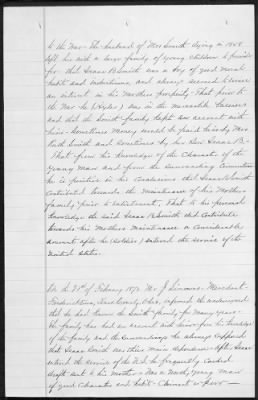 to the War. The husband of Mrs Smith dying in 1858
left her with a large family of young children to provide
for. that Isaac B Smith was a boy of good moral
habits and industrious, and always seemed to have
an interest in his mothers property. That prior to
the War he (Styles) was in the mercantile business
and did the Smith family kept an account with
him. Sometimes money would be paid him by Mrs
Ruth Smith and sometimes by her Son Isaac B.
That from his knowledge of the Character of the
young man and from the surrounding circumstances
he is positive in his conclusions that Isaac B Smith
contributed towards the maintenance of his Mothers
family prior to enlistment. That to his personal
knowledge the said Isaac B Smith did contribute
towards his mothers maintenance a considerable
amount after he (soldier) entered the service of the
United States.
On the 21st of February 1872 Mr J Simmons. Merchant
Fredericktown, Knox County, Ohio, informed the undersigned
that he had known the Smith family for many years.
The family has had an account with him from his knowledge
of the family and the surroundings he always supposed
that Isaac Smith was their main dependence. After Isaac
entered the service of the U.S. he frequently cashed
drafts sent to his mother. Was a worthy young man
of good Character and habits. Claimant is poor